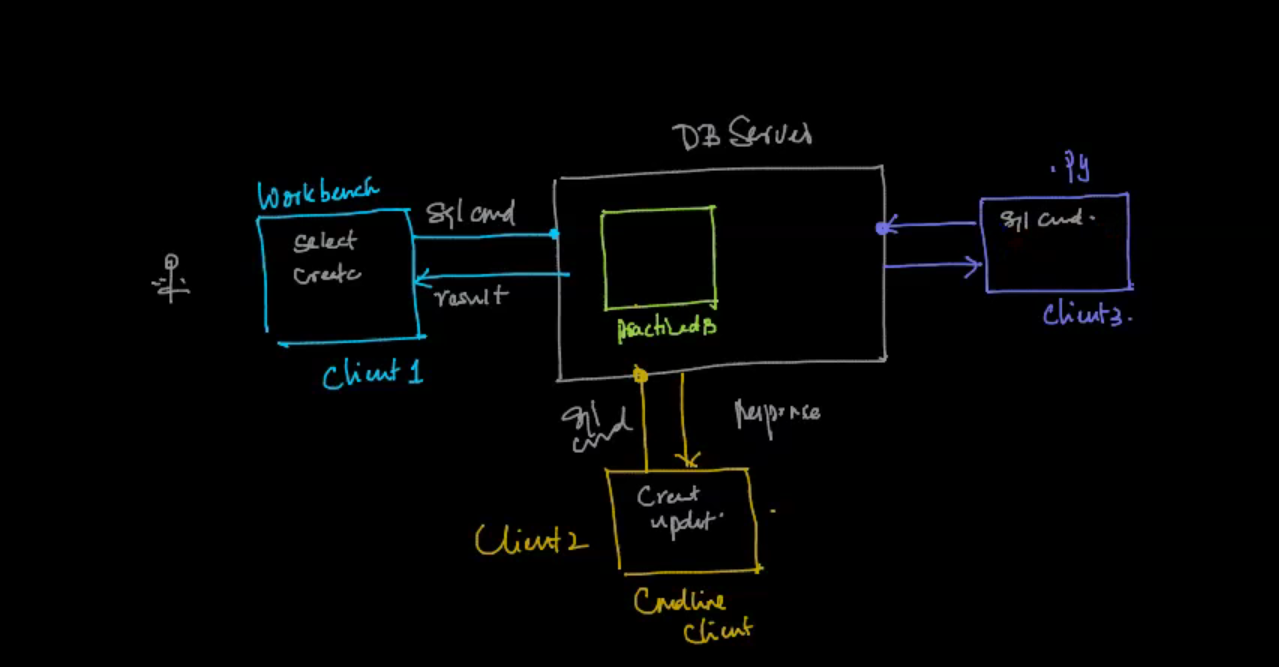 DB Server
.py
Workbench
Sql cmd
Select
Create
result
practicedB
Sql cmd.
Client3.
Client 1
Sql
cmd
response
Creat
updat.
Client2
Cmdline
Client